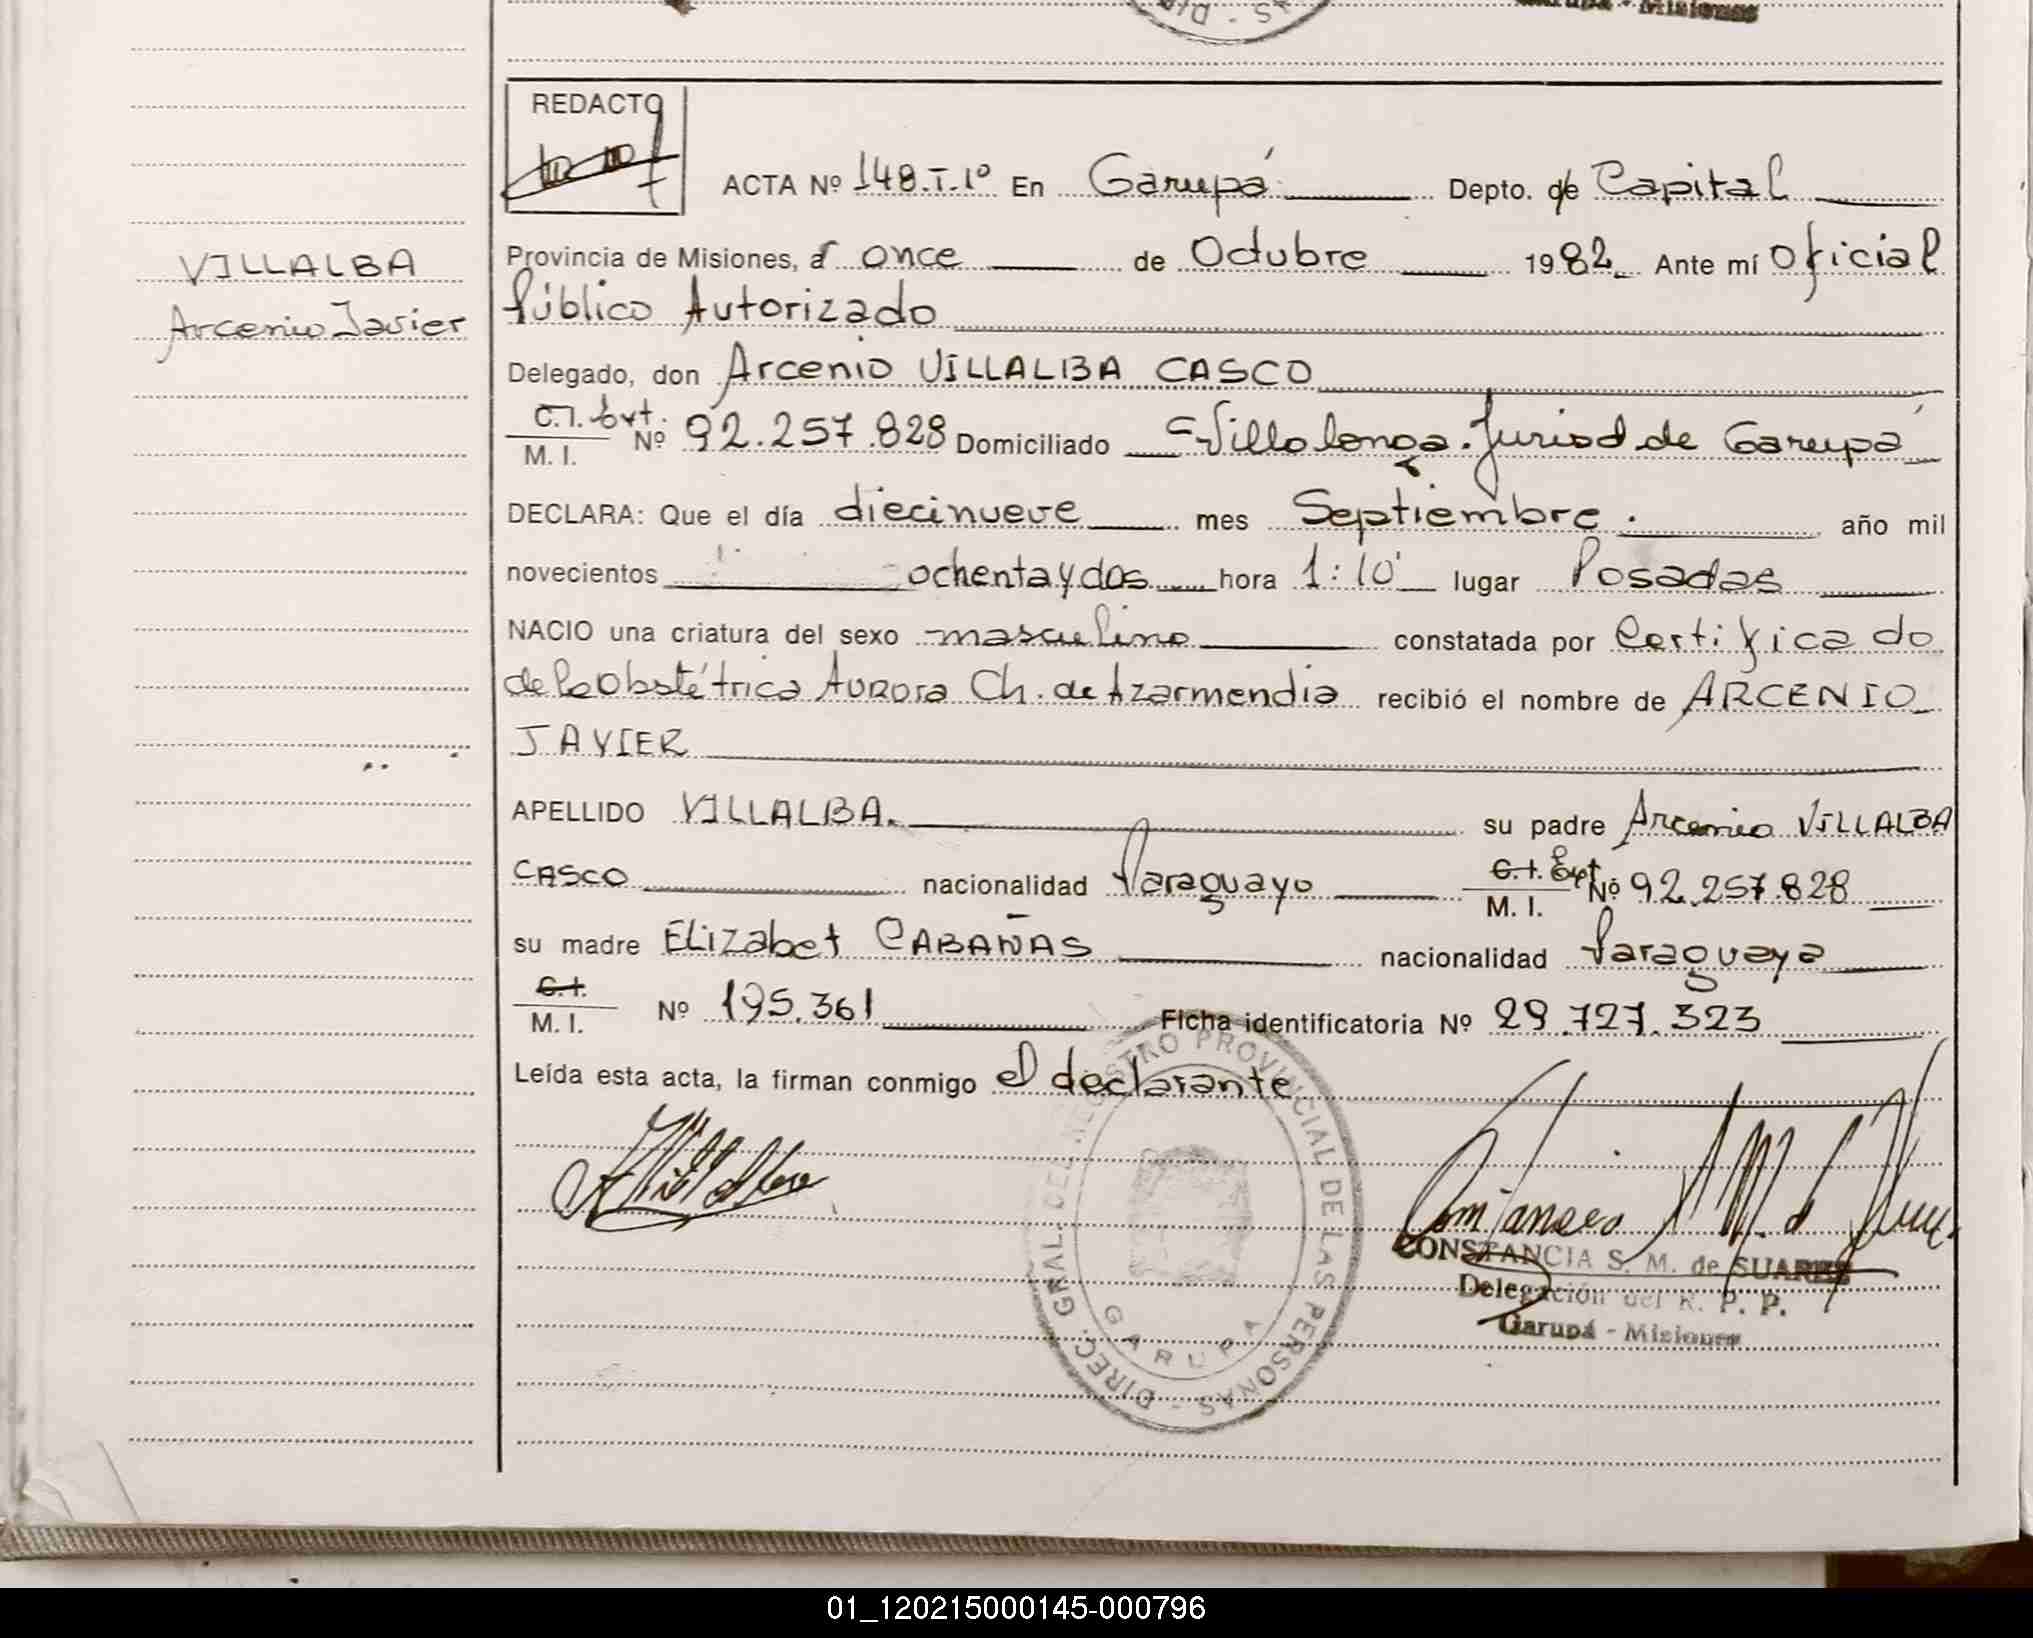 Garupá - Misiones
REDACTO
ACTA Nº 148.T.1º En Garupá Depto. de Capital
VILLALBA
Arcenio Javier
Provincia de Misiones, a once de Octubre 1982 Ante mí Oficial
Público Autorizado
Delegado, don Arcenio VILLALBA CASCO
C.I. Ext.
M. I. Nº 92.257.828 Domiciliado Villalonga. Jurisd. de Garupá
DECLARA: Que el día diecinueve mes Septiembre. año mil
novecientos ochenta y dos hora 1:10 lugar Posadas
NACIO una criatura del sexo masculino constatada por Certificado
de la Obstétrica Aurora Ch. de Azarmendia recibió el nombre de ARCENIO
JAVIER
APELLIDO VILLALBA. su padre Arcenio VILLALBA
CASCO nacionalidad Paraguayo C.I. Ext. M. I. Nº 92.257.828
su madre Elizabet CABAÑAS nacionalidad Paraguaya
C.I.
M. I. Nº 195.361 Ficha identificatoria Nº 29.727.323
Leída esta acta, la firman conmigo el declarante
DIREC. GRAL. DEL REGISTRO PROVINCIAL DE LAS PERSONAS -
GARUPA
CONSTANCIA S. M. de SUARES
Delegación del R. P. P.
Garupá - Misiones
01_120215000145-000796